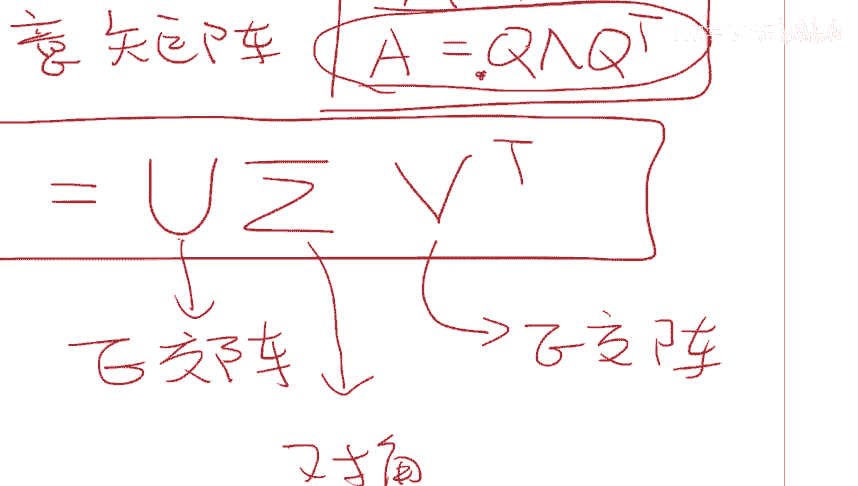 意矩阵 A = QΛQᵀ
= U Σ Vᵀ
正交阵 正交阵
对角